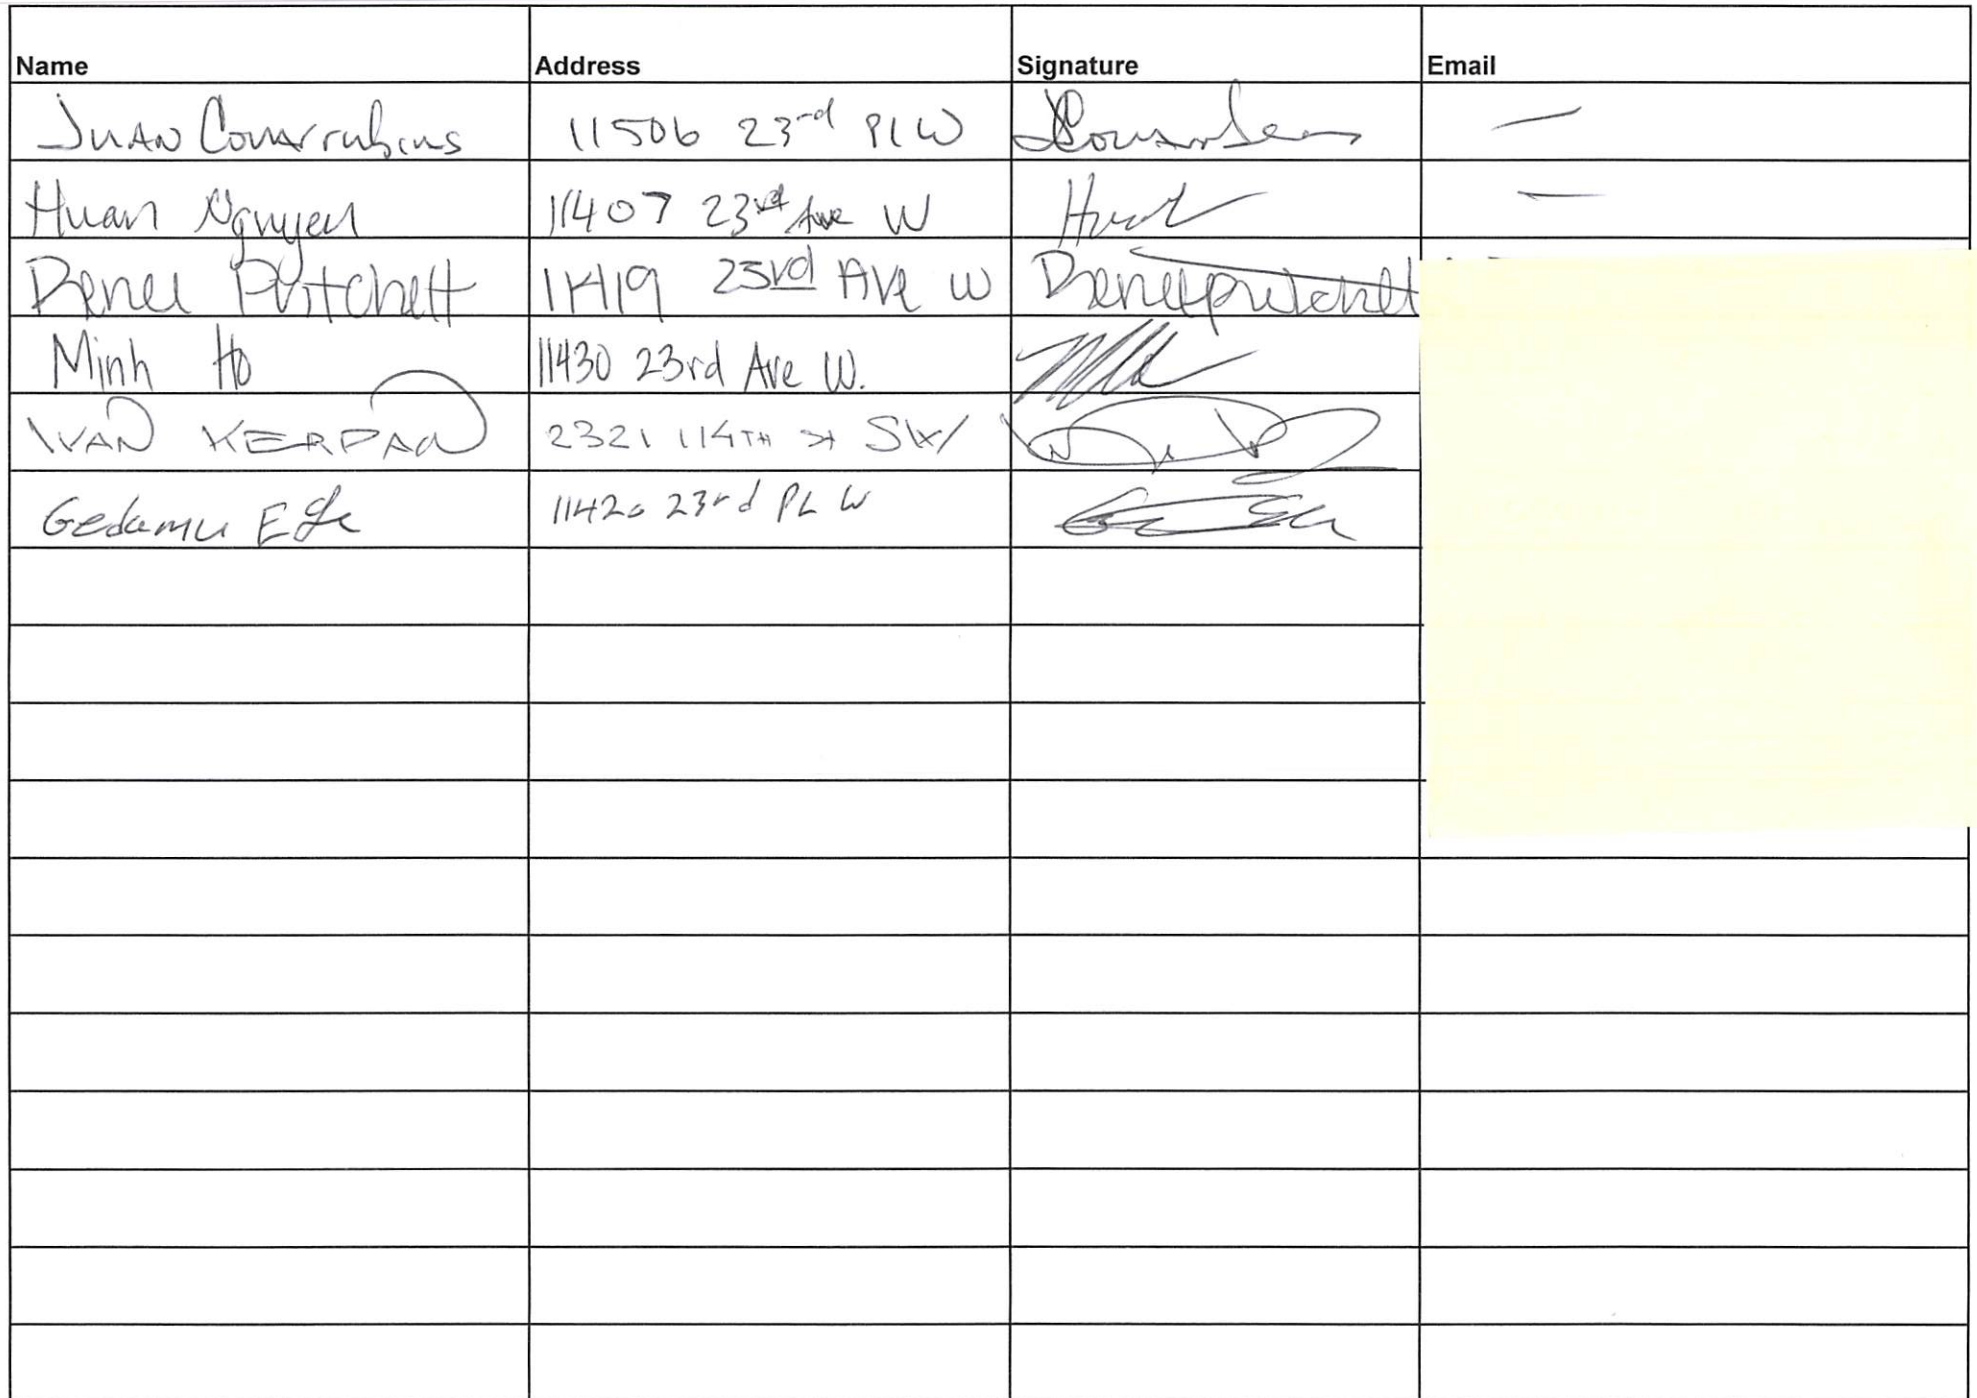 Name Address Signature Email
Juan Covarrubias 11506 23rd Pl W —
Huan Nguyen 11407 23rd Ave W
Renee Pritchett 11419 23rd Ave W Renee Pritchett
Minh Ho 11430 23rd Ave W.
IVAN KERPAN 2321 114TH St SW
Gedamu 11420 23rd PL W